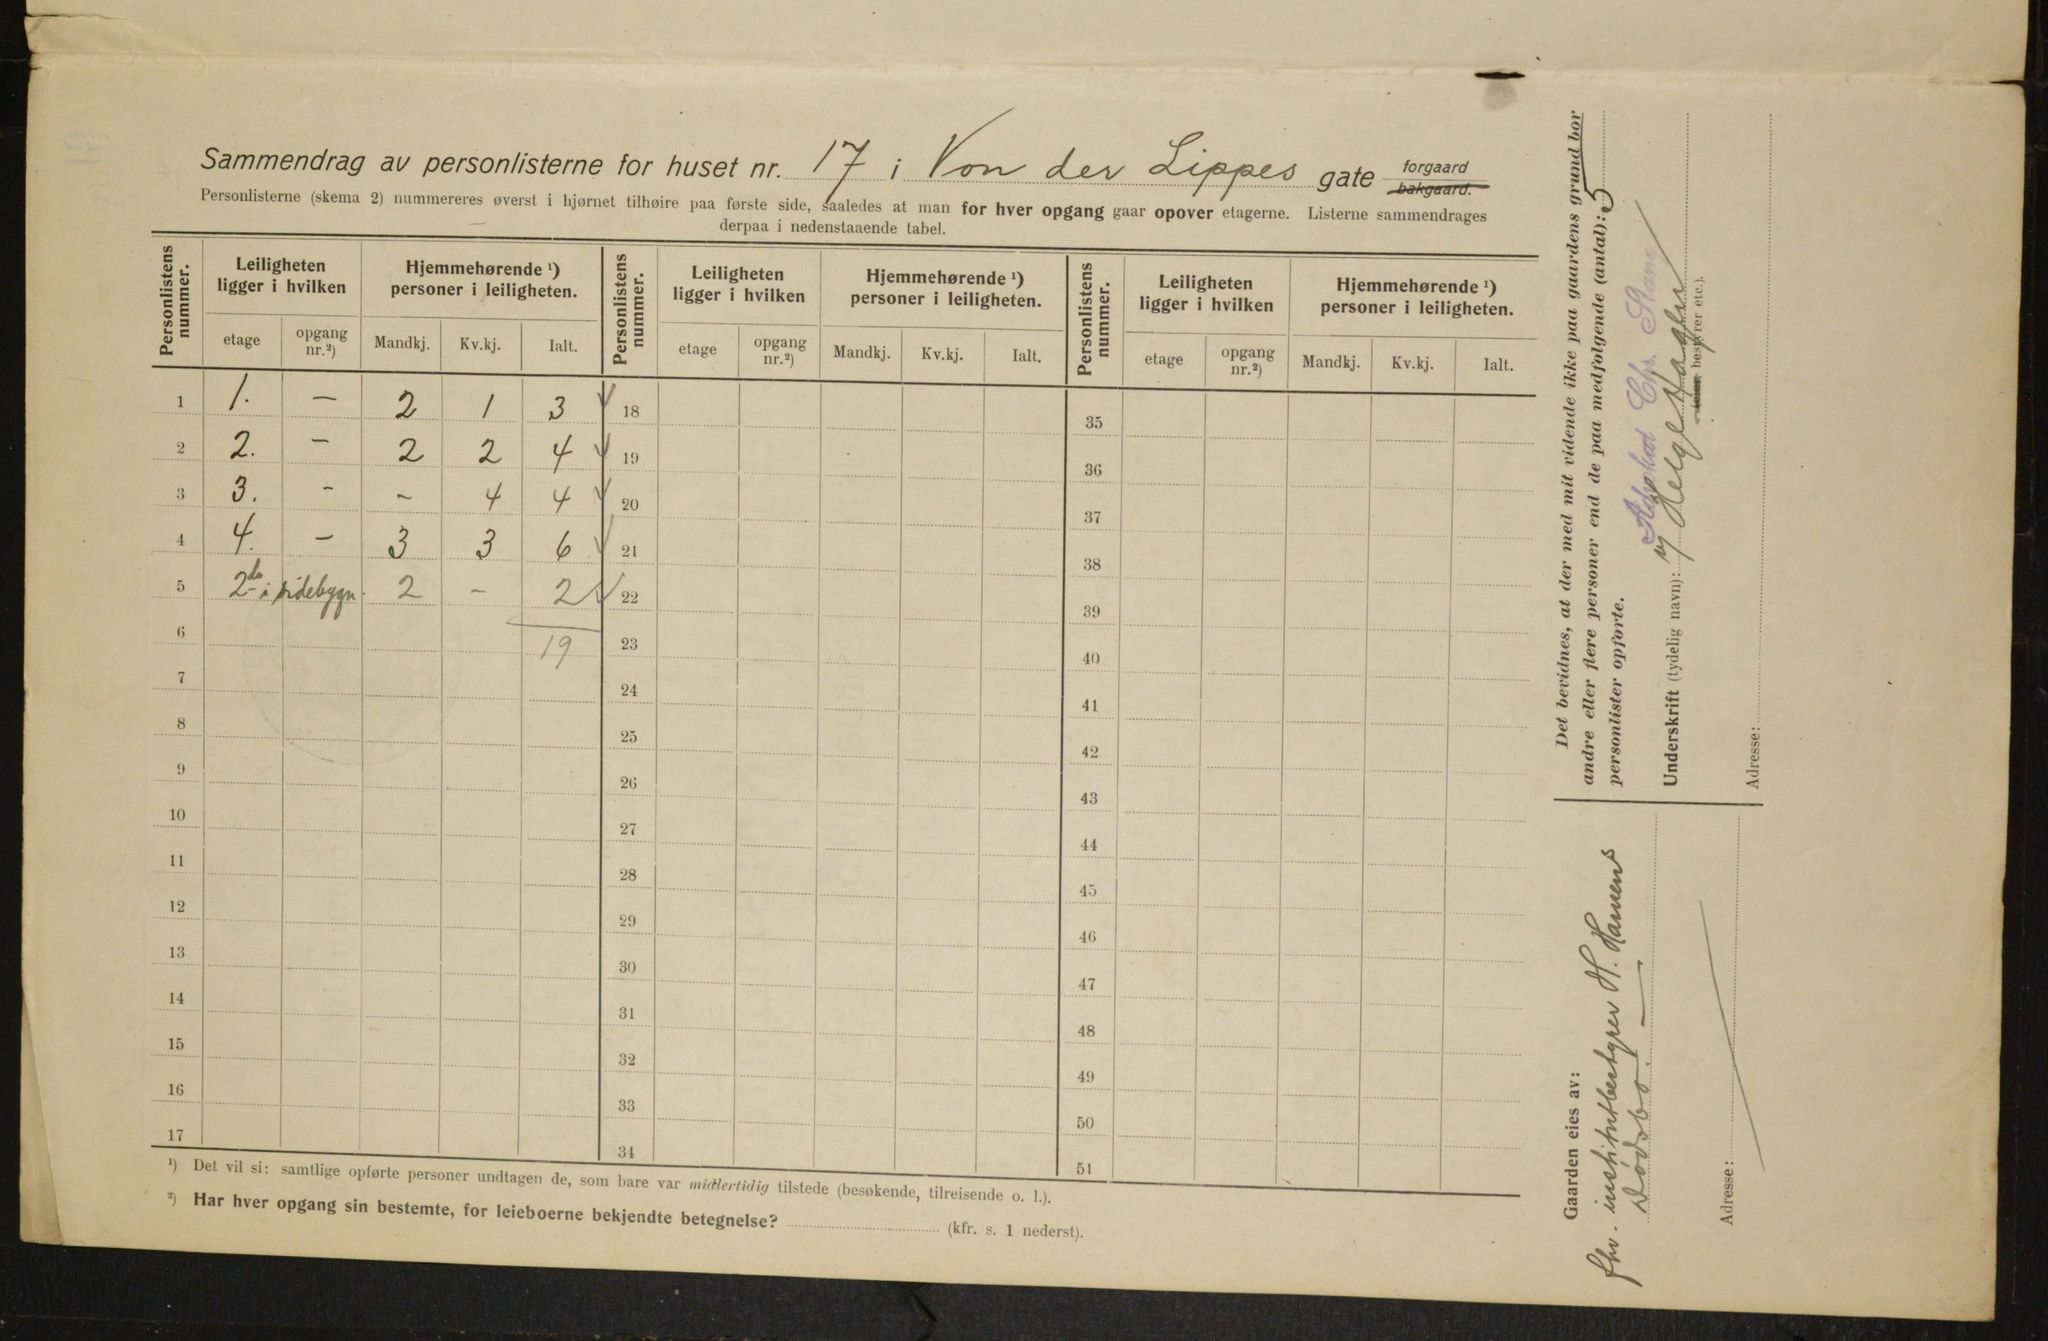 Sammendrag av personlisterne for huset nr. 17 i Von der Lippes gate forgaard bakgaard.
Personlisterne (skema 2) nummereres øverst i hjørnet tilhøire paa første side, saaledes at man for hver opgang gaar opover etagerne. Listerne sammendrages
derpaa i nedenstaaende tabel.
Personlistens nummer. Leiligheten ligger i hvilken Hjemmehørende ¹) personer i leiligheten. Personlistens nummer. Leiligheten ligger i hvilken Hjemmehørende ¹) personer i leiligheten. Personlistens nummer. Leiligheten ligger i hvilken Hjemmehørende ¹) personer i leiligheten.
etage opgang nr.²) Mandkj. Kv.kj. Ialt. etage opgang nr.²) Mandkj. Kv.kj. Ialt. etage opgang nr.²) Mandkj. Kv.kj. Ialt.
1 1. – 2 1 3 18 35
2 2. – 2 2 4 19 36
3 3. – – 4 4 20 37
4 4. – 3 3 6 21 38
5 2den i sidebygn. 2 – 2 22 39
6 19 23 40
7 24 41
8 25 42
9 26 43
10 27 44
11 28 45
12 29 46
13 30 47
14 31 48
15 32 49
16 33 50
17 34 51
¹) Det vil si: samtlige opførte personer undtagen de, som bare var midlertidig tilstede (besøkende, tilreisende o. l.).
²) Har hver opgang sin bestemte, for leieboerne bekjendte betegnelse? (kfr. s. 1 nederst).
Det bevidnes, at der med mit vidende ikke paa gaardens grund bor
andre eller flere personer end de paa medfølgende (antal): 5
personlister opførte.
Chr.
Underskrift (tydelig navn): Helge
bestyrer etc.).
Adresse:
Gaarden eies av:
fhv. institutbestyrer H. Hansens
Dødsbo.
Adresse: